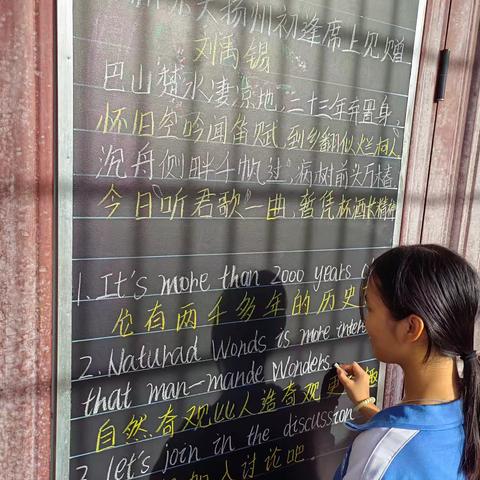 乐天扬州初逢席上见赠
刘禹锡
巴山楚水凄凉地,二十三年弃置身,
怀旧空吟闻笛赋,到乡翻似烂柯人
沉舟侧畔千帆过,病树前头万木春
今日听君歌一曲,暂凭杯酒长精神
1. It's more than 2000 years
它有两千多年的历史
2. Naturad Wonds is more
that man-mande Wonders.
自然奇观比人造奇观更
3 let's join in the discussion
加入讨论吧.